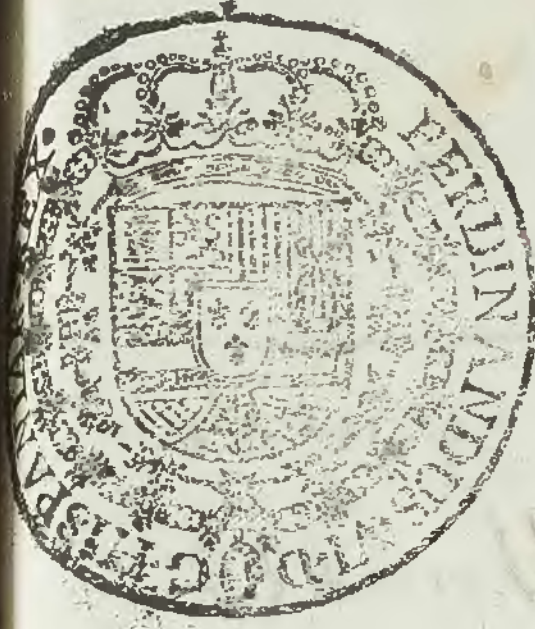 FERDINANDUS VI D G HISPAN REX.